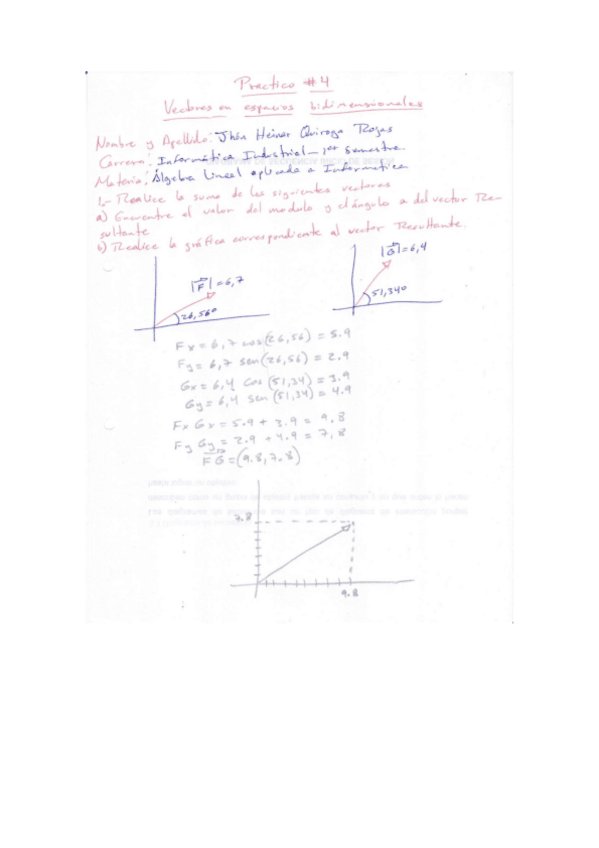 Practico #4
Vectores en espacios bidimensionales
Nombre y Apellido: Jhón Heiner Quiroga Rojas
Carrera: Informática Industrial – 1er semestre.
Materia: Álgebra Lineal aplicada a Informatica
1.- Realice la suma de los siguientes vectores
a) Encuentre el valor del modulo y el ángulo a del vector Re-
sultante
b) Realice la gráfica correspondiente al vector Resultante.
|F| = 6,7
26,56º
|G| = 6,4
51,34º
Fx = 6,7 cos(26,56) = 5.9
Fy = 6,7 sen(26,56) = 2.9
Gx = 6,4 cos(51,34) = 3.9
Gy = 6,4 sen(51,34) = 4.9
Fx Gx = 5.9 + 3.9 = 9.8
Fy Gy = 2.9 + 4.9 = 7,8
FG = (9.8, 7.8)
7.8
9.8